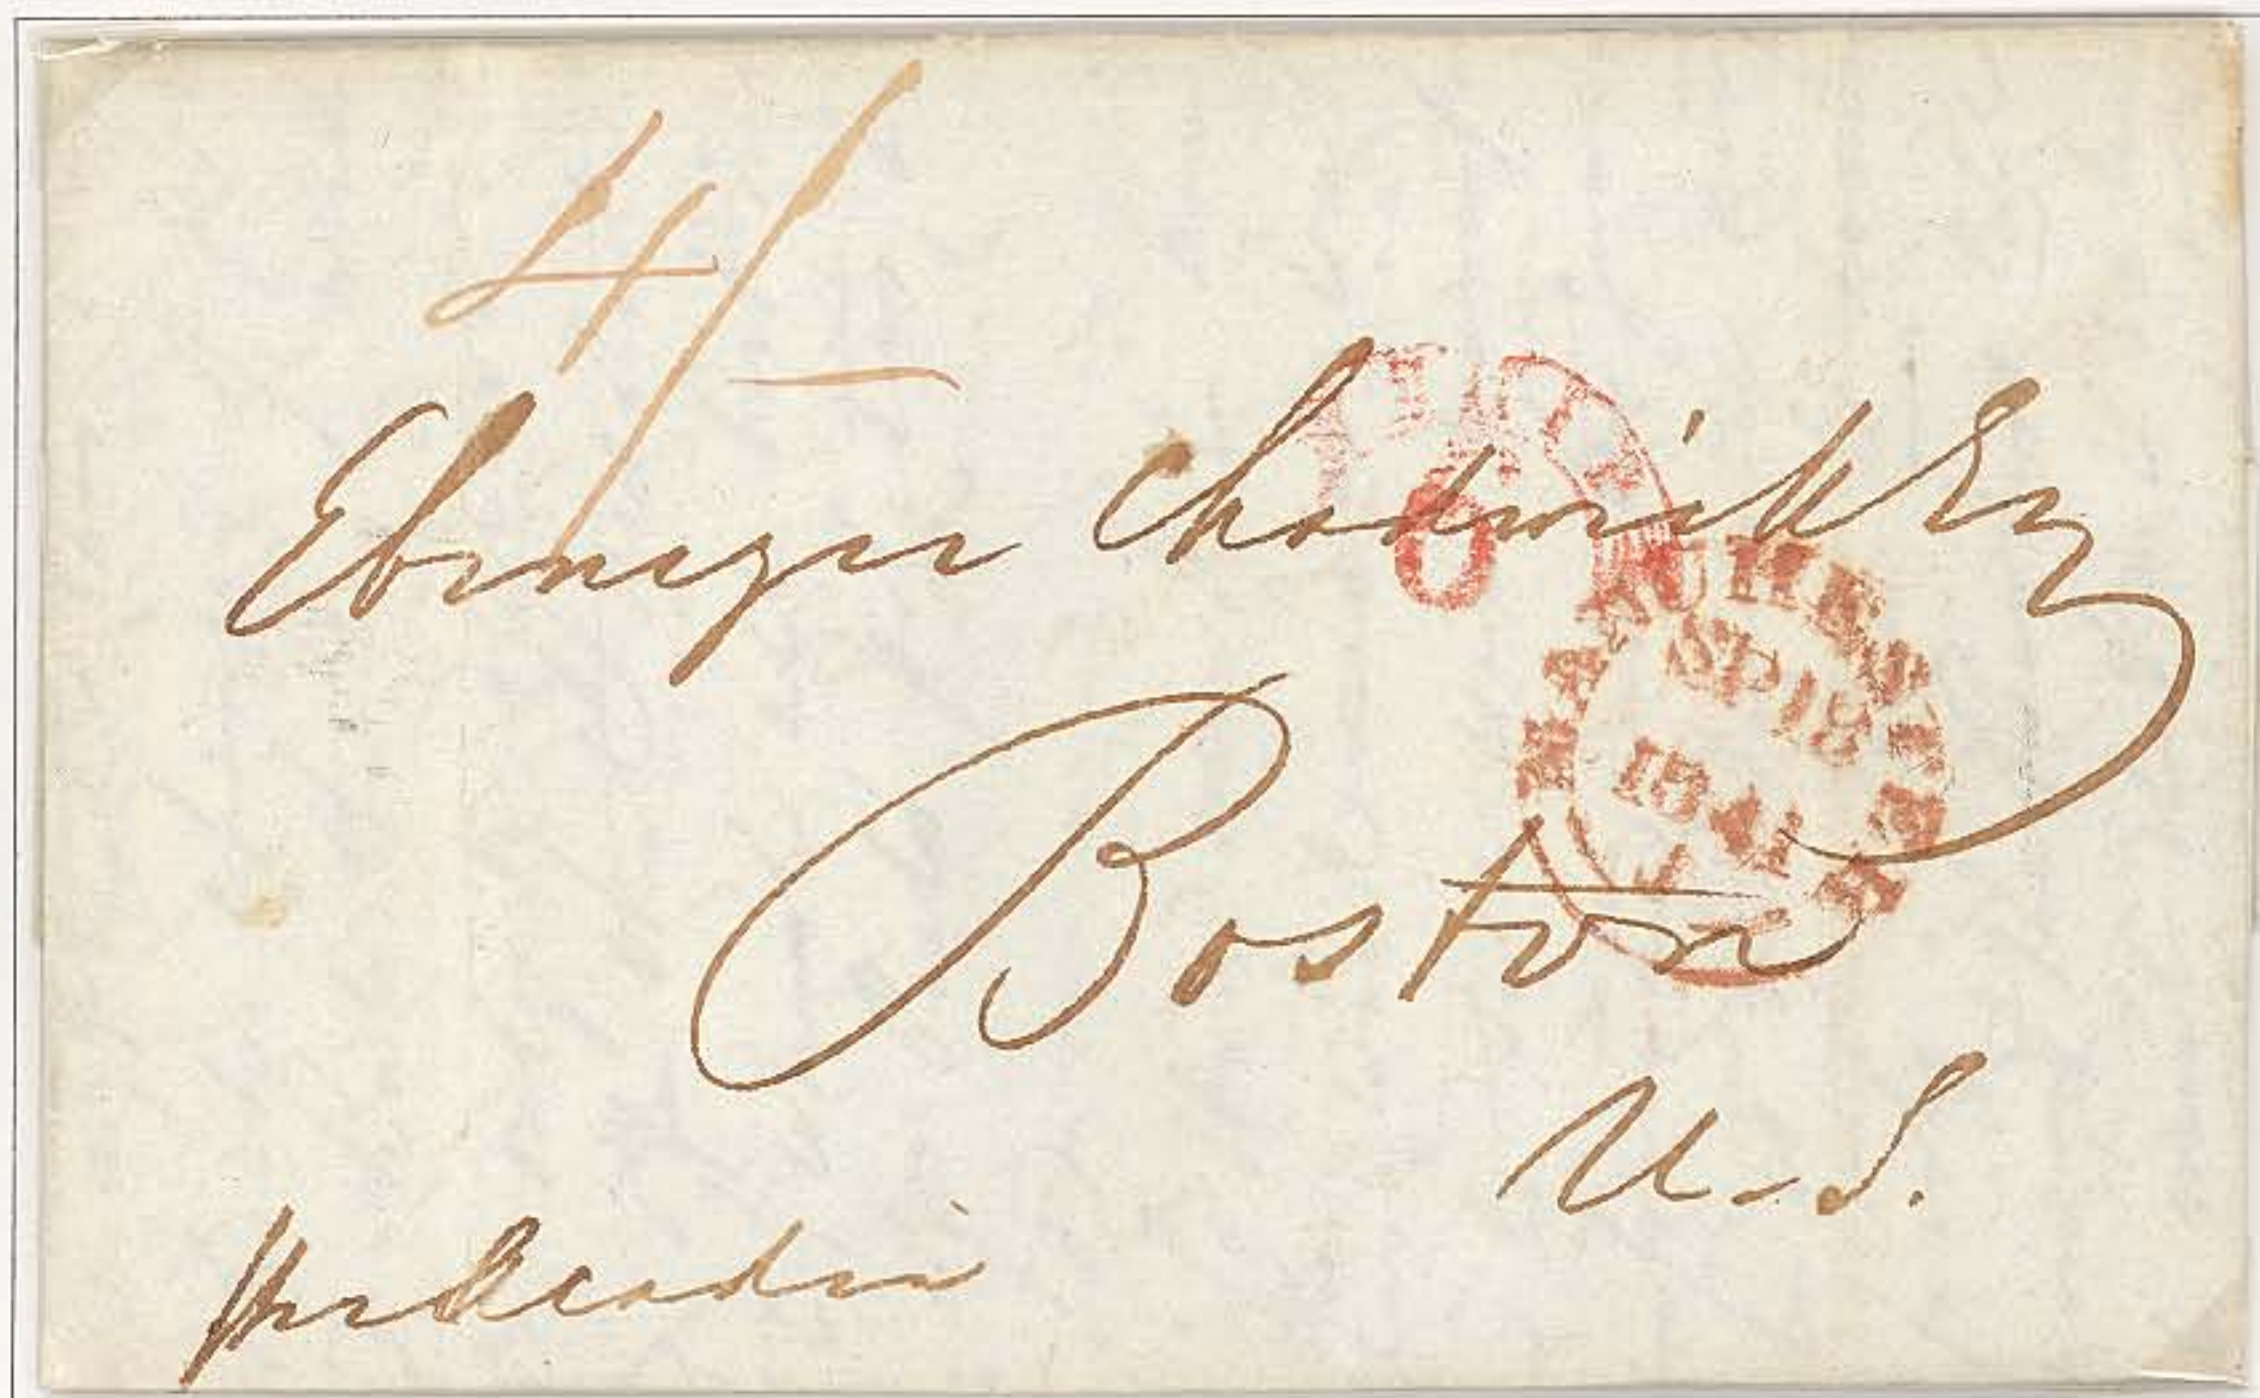 4/-
Ebenezer Chadwick Esq
SHIP
6
MANCHESTER
SP 18
1841
Boston
U.S.
per Acadia